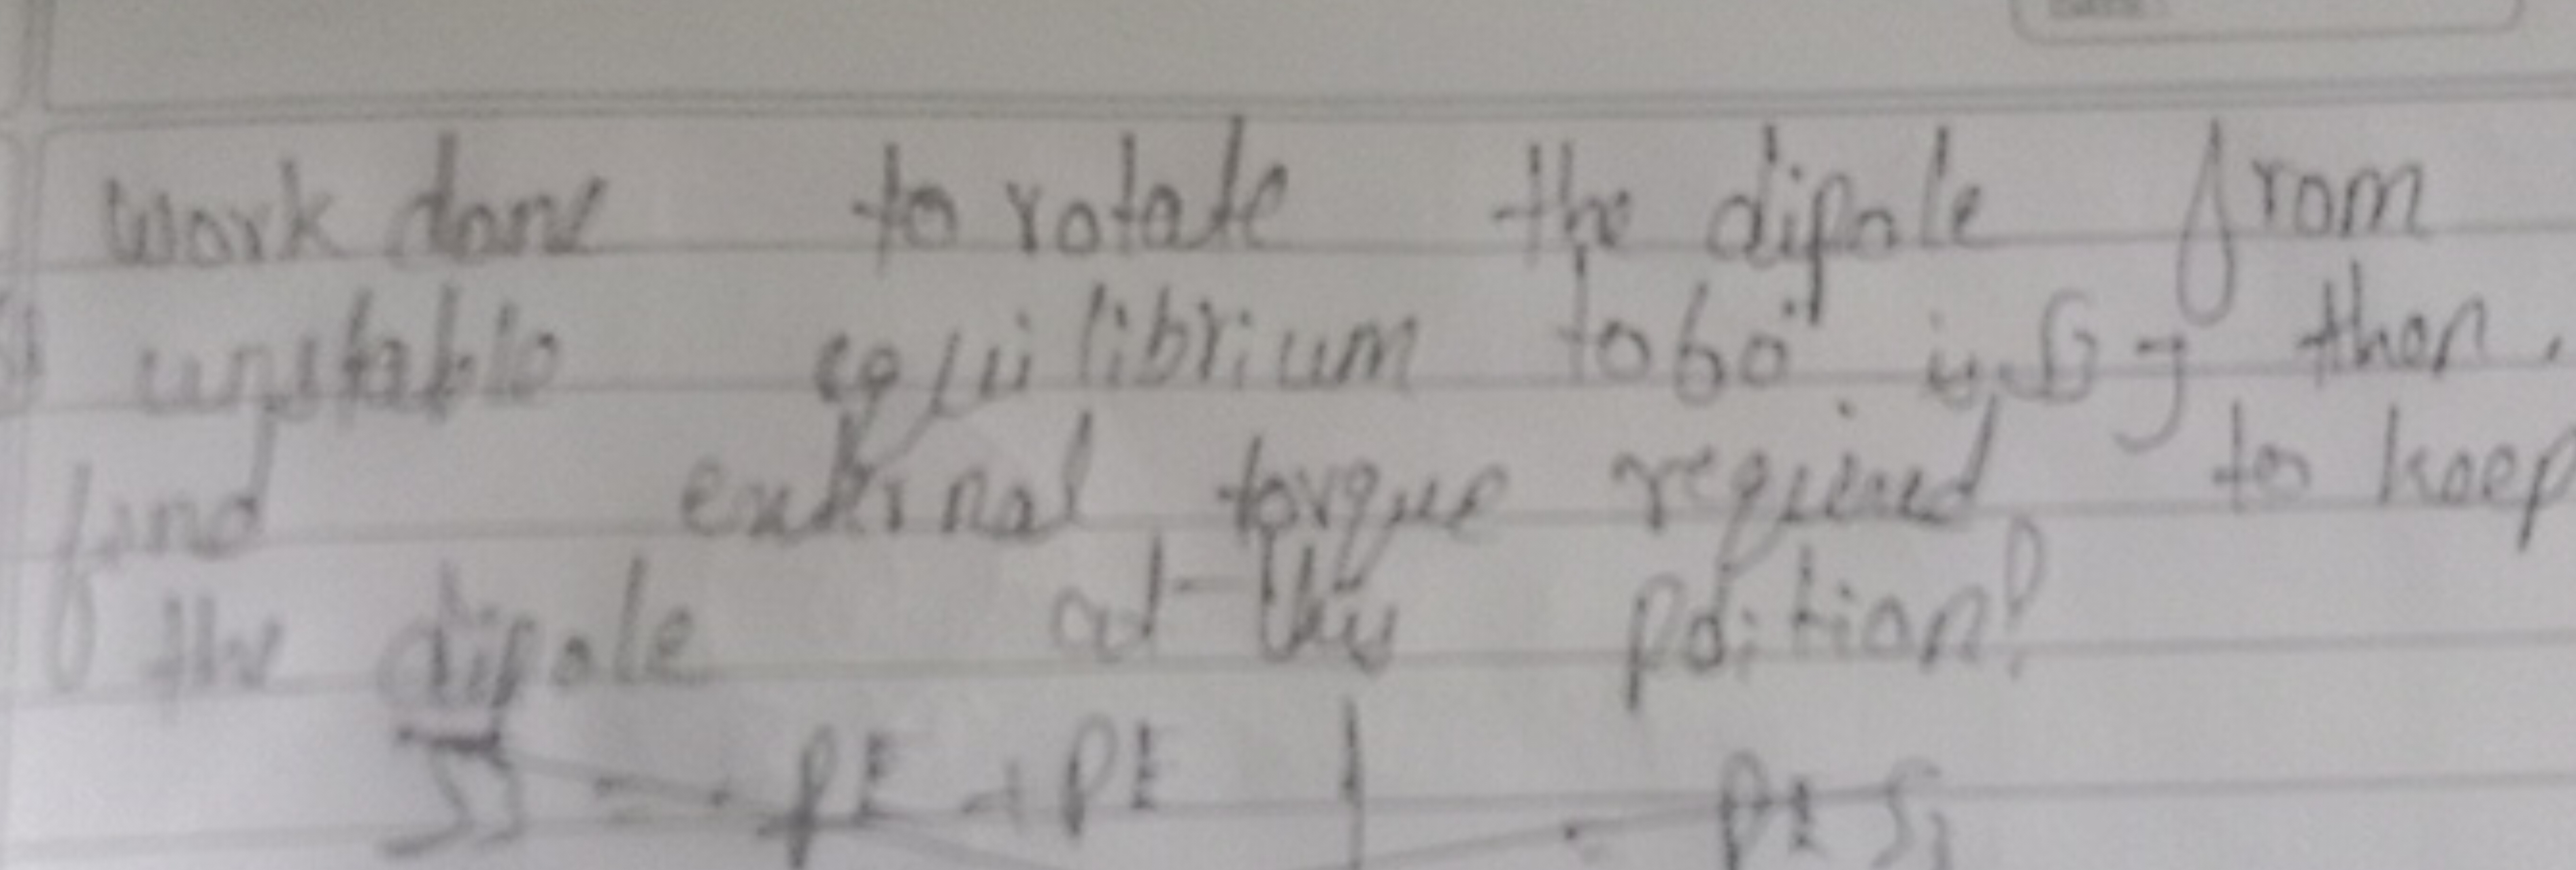 Work done to rotate the dipole from
unstable equilibrium to 60° is √3 J then.
find external torque required to keep
the dipole at this poition?
PE + PE